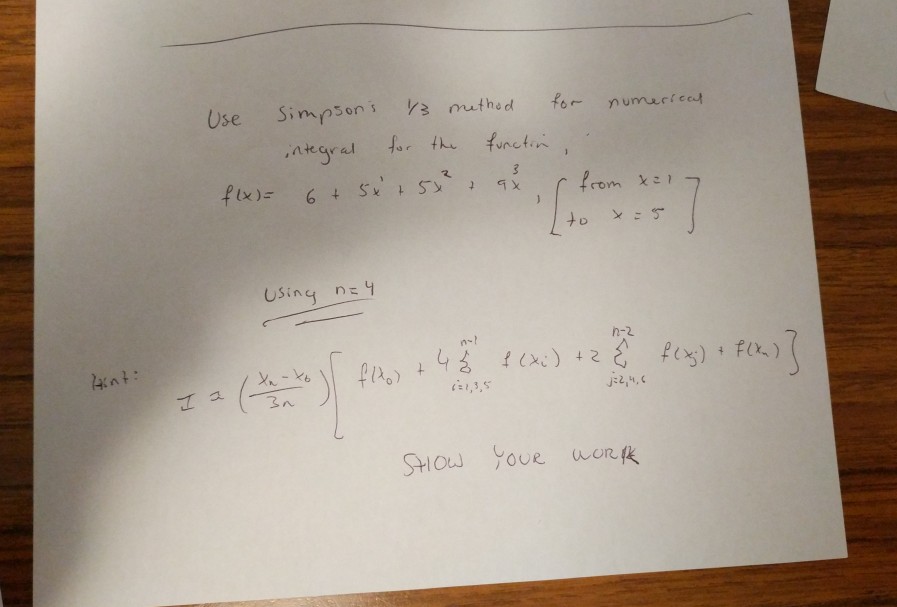 Use Simpson's 1/3 method for numerical
integral for the functin,
f(x) = 6 + 5x¹ + 5x² + 9x³, [from x=1
to x = 5]
Using n=4
Hint: I ≈ (xₙ-x₀ / 3n) [f(x₀) + 4 Σ f(xᵢ) + 2 Σ f(xⱼ) + f(xₙ)]
n-1 n-2
i=1,3,5 j=2,4,6
SHOW YOUR WORK